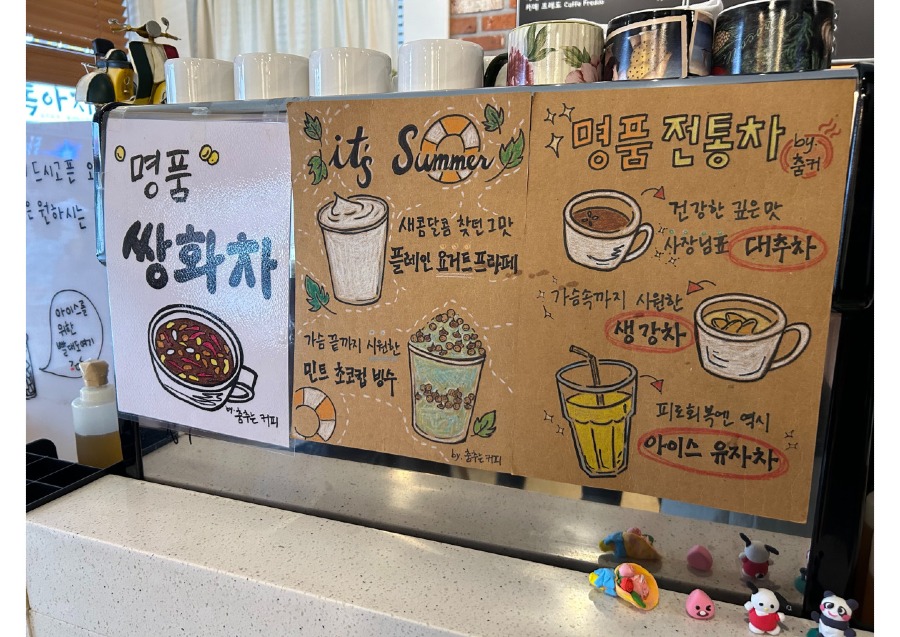 카페 프레도 Caffe Freddo
아이스를
위한
빨대도여기
명품
쌍화차
by. 춤추는 커피
it's Summer
새콤달콤 찾던 그맛
플레인 요거트프라페
가슴 끝까지 시원한
민트 초코컵 빙수
by. 춤추는커피
명품 전통차
by.
춤커
건강한 깊은맛
사장님표 대추차
가슴속까지 시원한
생강차
피로회복엔 역시
아이스 유자차